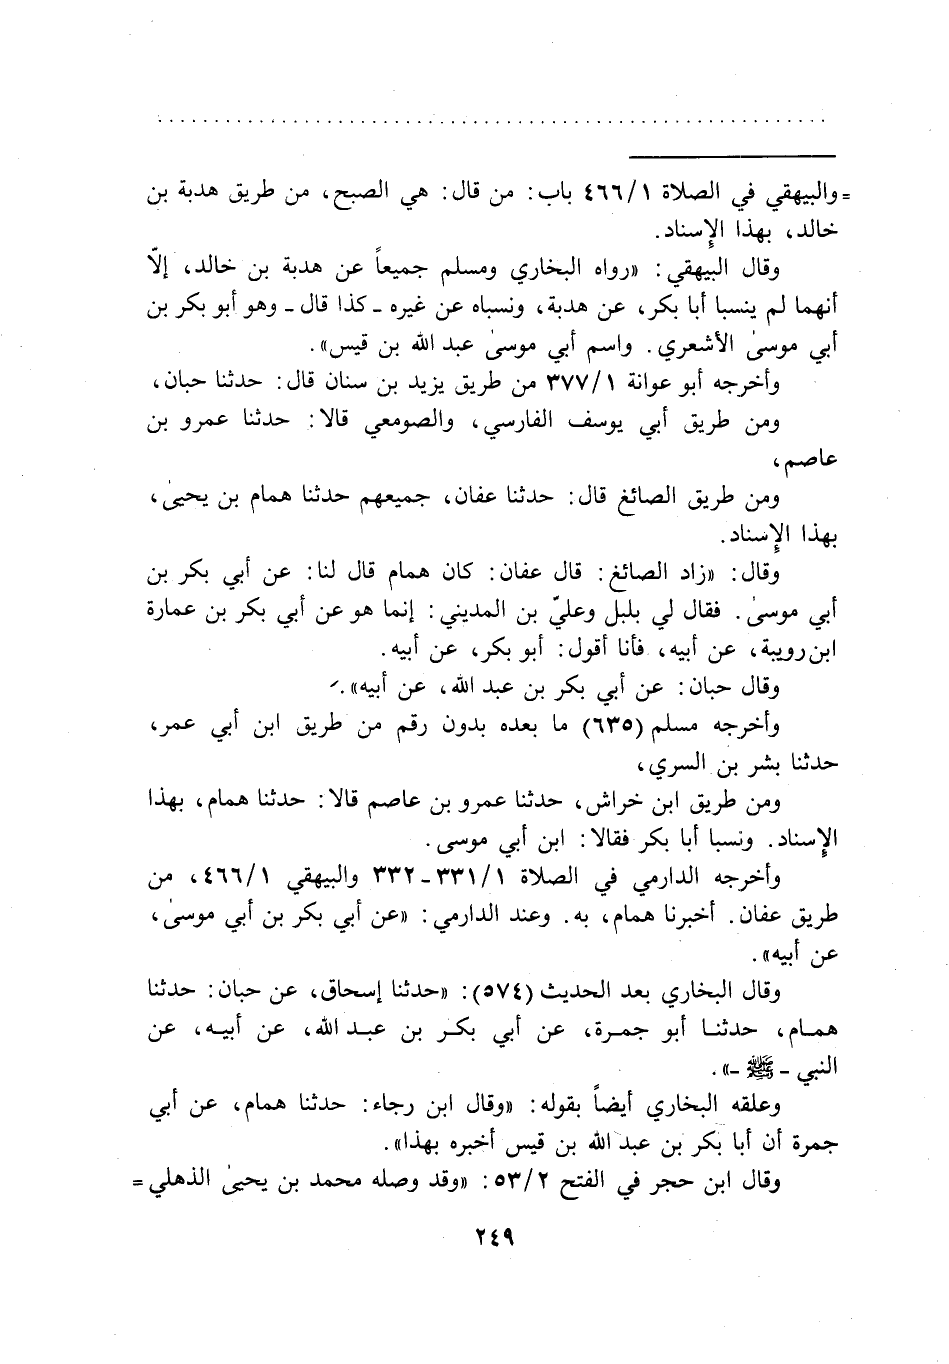 = والبيهقي في الصلاة ٤٦٦/١ باب: من قال: هي الصبح، من طريق هدبة بن
خالد، بهذا الإِسناد.
وقال البيهقي: «رواه البخاري ومسلم جميعاً عن هدبة بن خالد، إلّا
أنهما لم ينسبا أبا بكر، عن هدبة، ونسباه عن غيره ـ كذا قال ـ وهو أبو بكر بن
أبي موسىٰ الأشعري. واسم أبي موسىٰ عبد الله بن قيس».
وأخرجه أبو عوانة ٣٧٧/١ من طريق يزيد بن سنان قال: حدثنا حبان،
ومن طريق أبي يوسف الفارسي، والصومعي قالا: حدثنا عمرو بن
عاصم،
ومن طريق الصائغ قال: حدثنا عفان، جميعهم حدثنا همام بن يحيىٰ،
بهذا الإِسناد.
وقال: «زاد الصائغ: قال عفان: كان همام قال لنا: عن أبي بكر بن
أبي موسىٰ. فقال لي بلبل وعليّ بن المديني: إنما هو عن أبي بكر بن عمارة
ابن رويبة، عن أبيه، فأنا أقول: أبو بكر، عن أبيه.
وقال حبان: عن أبي بكر بن عبد الله، عن أبيه».
وأخرجه مسلم (٦٣٥) ما بعده بدون رقم من طريق ابن أبي عمر،
حدثنا بشر بن السري،
ومن طريق ابن خراش، حدثنا عمرو بن عاصم قالا: حدثنا همام، بهذا
الإِسناد. ونسبا أبا بكر فقالا: ابن أبي موسى.
وأخرجه الدارمي في الصلاة ٣٣١/١ ـ ٣٣٢ والبيهقي ٤٦٦/١، من
طريق عفان. أخبرنا همام، به. وعند الدارمي: «عن أبي بكر بن أبي موسىٰ،
عن أبيه».
وقال البخاري بعد الحديث (٥٧٤): «حدثنا إسحاق، عن حبان: حدثنا
همام، حدثنا أبو جمرة، عن أبي بكر بن عبد الله، عن أبيه، عن
النبي ـ ﷺ ـ».
وعلقه البخاري أيضاً بقوله: «وقال ابن رجاء: حدثنا همام، عن أبي
جمرة أن أبا بكر بن عبد الله بن قيس أخبره بهذا».
وقال ابن حجر في الفتح ٥٣/٢: «وقد وصله محمد بن يحيىٰ الذهلي =
٢٤٩